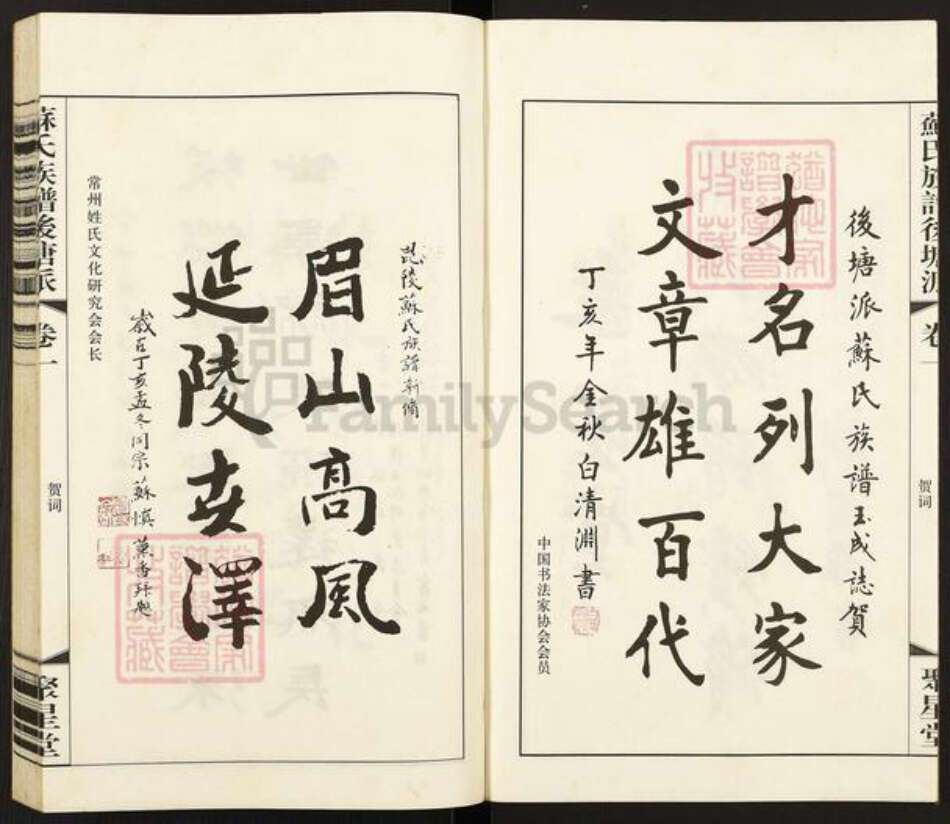 蘇氏族譜後塘派
卷一
贺词
聚星堂
後塘派蘇氏族譜玉成誌賀
才名列大家
文章雄百代
丁亥年金秋白清淵書
中国书法家协会会员
遺家
譜學會
收藏
FamilySearch
毘陵蘇氏族譜新脩
眉山高風
延陵世澤
歲在丁亥孟冬同宗蘇慎
常州姓氏文化研究会会长
蘇氏族譜後塘派
卷一
贺词
聚星堂